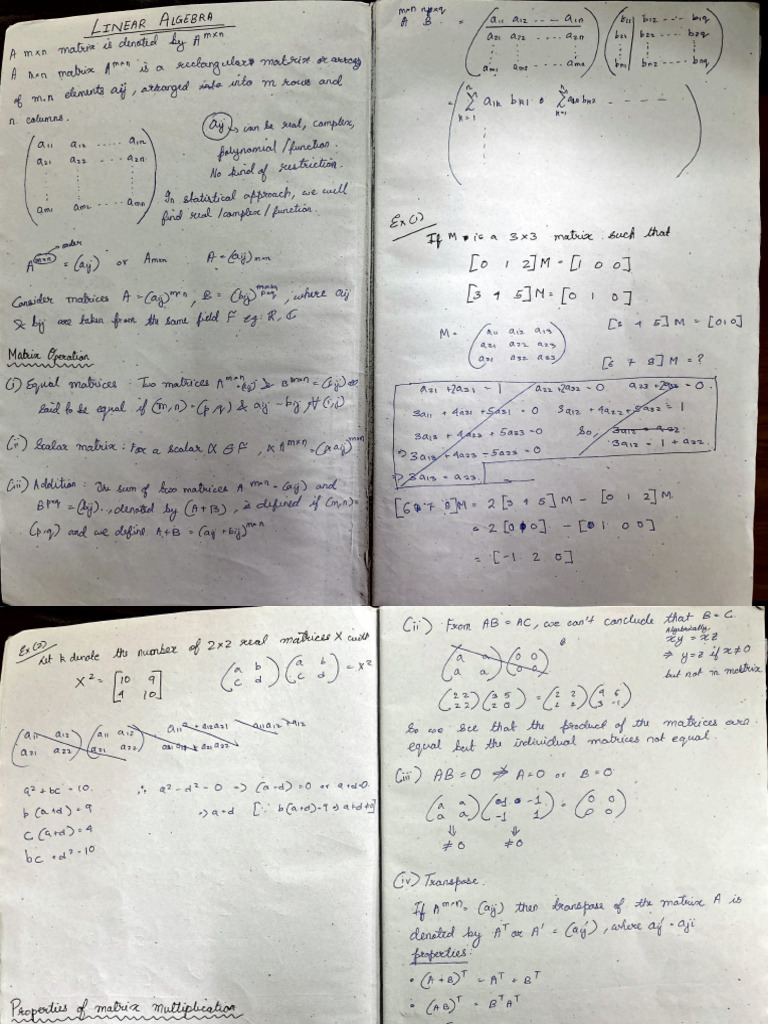 LINEAR ALGEBRA
A m×n matrix is denoted by A^m×n
A m×n matrix A^m×n is a rectangular matrix or array
of m.n elements aij, arranged into m rows and
n columns.
( a11 a12 ..... a1n
a21 a22 .... a2n
am1 am2 .... amn )
aij → can be real, complex,
polynomial/function.
No kind of restriction.
In statistical approach, we will
find real/complex/function.
order
A^m×n = (aij) or Am×n A = (aij)m×n
Consider matrices A = (aij)^m×n, B = (bij)^p×q, where aij
& bij are taken from the same field F eg: R, C
Matrix Operation
(i) Equal matrices : Two matrices A^m×n = (aij) & B^p×q = (bij) are
said to be equal if (m,n) = (p,q) & aij = bij ∀ (i,j)
(ii) Scalar matrix : For a scalar α ∈ F, αA^m×n = (αaij)^m×n
(iii) Addition : The sum of two matrices A^m×n = (aij) and
B^p×q = (bij), denoted by (A+B), is defined if (m,n) =
(p,q) and we define A+B = (aij + bij)^m×n
A^m×n B^n×q = ( a11 a12 .... a1n ) ( b11 b12 .... b1q )
a21 a22 .... a2n b21 b22 .... b2q
am1 am2 .... amn bn1 bn2 .... bnq
= ( Σ(k=1 to n) a1k bk1 Σ(k=1 to n) a1k bk2 - - - - - )
Ex(1)
If M is a 3×3 matrix such that
[0 1 2]M = [1 0 0]
[3 4 5]M = [0 1 0]
M = ( a11 a12 a13
a21 a22 a23
a31 a32 a33 )
[3 4 5]M = [0 1 0]
[6 7 8]M = ?
a21 + 2a31 = 1 a22 + 2a32 = 0 a23 + 2a33 = 0
3a11 + 4a21 + 5a31 = 0 3a12 + 4a22 + 5a32 = 1
3a13 + 4a23 + 5a33 = 0 So,
⇒ 3a13 + 4a23 - 5a33 = 0 3a12 = 1 + a22
⇒ 3a13 = a23
[6 7 8]M = 2[3 4 5]M - [0 1 2]M
= 2[0 1 0] - [1 0 0]
= [-1 2 0]
Ex(2)
Let k denote the number of 2×2 real matrices X with
X² = [ 10 9
4 10 ] ( a b
c d ) ( a b
c d ) = X²
( a11 a12
a21 a22 ) ( a11 a12
a21 a22 )
a² + bc = 10 ∴ a² - d² = 0 ⇒ (a-d) = 0 or a+d = 0
b(a+d) = 9 ⇒ a = d [∵ b(a+d) = 9 ⇒ a+d ≠ 0]
c(a+d) = 4
bc + d² = 10
Properties of matrix multiplication
(ii) From AB = AC, we can't conclude that B = C.
Algebraically
xy = xz
⇒ y = z if x ≠ 0
but not in matrix
( a a
a a ) ( 0 0
0 0 )
( 2 2
2 2 ) ( 3 5
2 0 ) = ( 2 2
2 2 )
So we see that the product of the matrices are
equal but the individual matrices not equal.
(iii) AB = 0 ⇏ A = 0 or B = 0
( a a
a a ) ( 1 -1
-1 1 ) = ( 0 0
0 0 )
⇓ ⇓
≠0 ≠0
(iv) Transpose.
If A^m×n = (aij) then transpose of the matrix A is
denoted by A^T or A' = (aij'), where aij' = aji
properties:
• (A+B)^T = A^T + B^T
• (AB)^T = B^T A^T